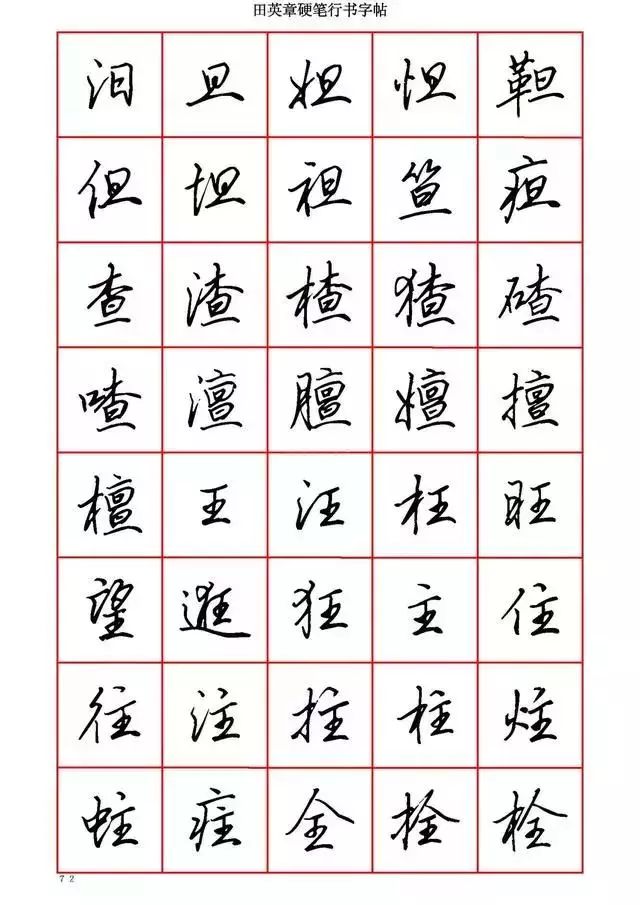 田英章硬笔行书字帖
汨旦妲怛靼
但坦袒笪疸
查渣楂猹碴
喳澶膻嬗擅
檀王汪枉旺
望逛狂主住
往注拄柱炷
蛀疰全拴栓
72